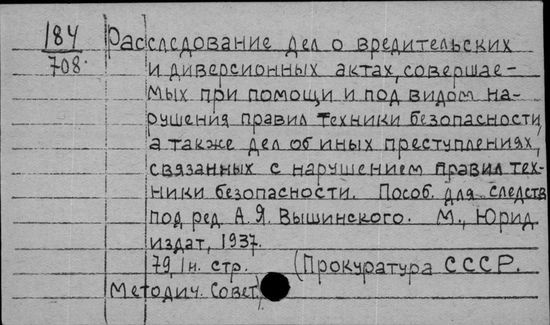 184 Расследование дел о вредительских
708. и диверсионных актах, совершае-
мых при помощи и под видом на-
рушения правил техники безопасности,
а также дел об иных преступлениях,
связанных с нарушением правил тех-
ники безопасности. Пособ. для следств
под ред. А.Я. Вышинского. М., Юрид.
издат, 1937.
79, 1н. стр. (Прокуратура СССР.
Методич. Совет)